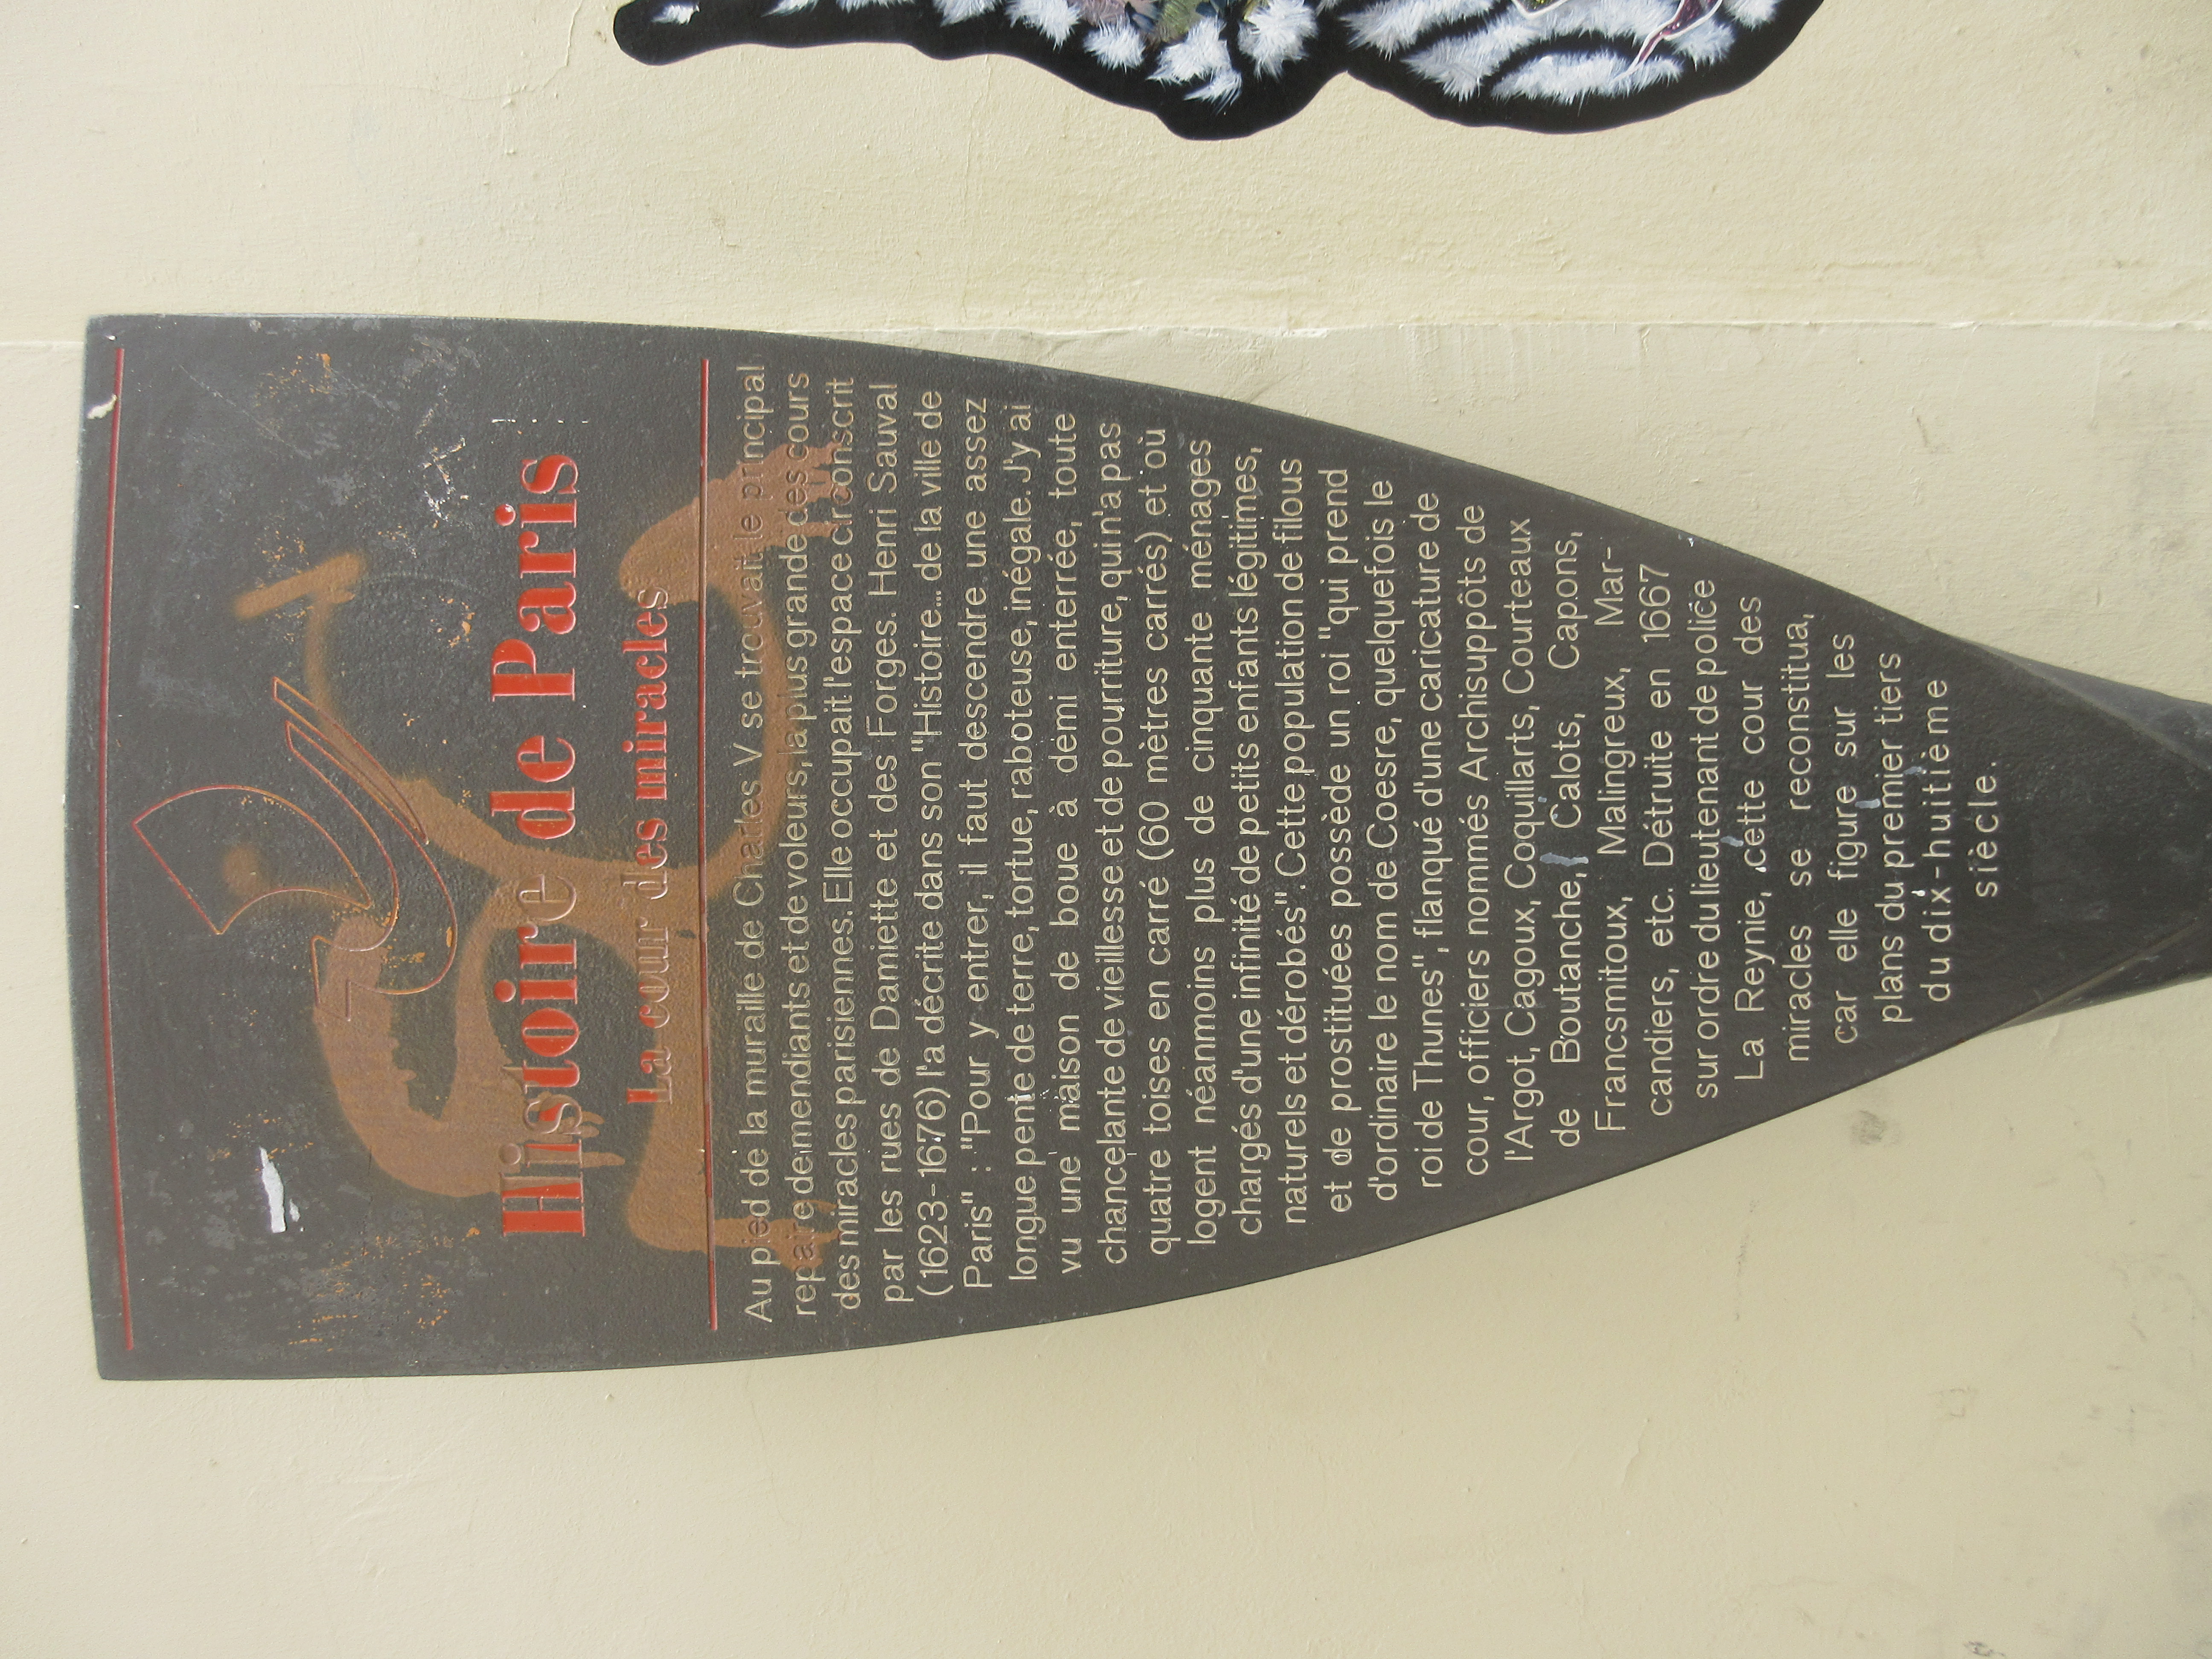 Histoire de Paris
La cour des miracles
Au pied de la muraille de Charles V se trouvait le principal
repaire de mendiants et de voleurs, la plus grande des cours
des miracles parisiennes. Elle occupait l'espace circonscrit
par les rues de Damiette et des Forges. Henri Sauval
(1623-1676) l'a décrite dans son "Histoire... de la ville de
Paris" : "Pour y entrer, il faut descendre une assez
longue pente de terre, tortue, raboteuse, inégale. J'y ai
vu une maison de boue à demi enterrée, toute
chancelante de vieillesse et de pourriture, qui n'a pas
quatre toises en carré (60 mètres carrés) et où
logent néanmoins plus de cinquante ménages
chargés d'une infinité de petits enfants légitimes,
naturels et dérobés". Cette population de filous
et de prostituées possède un roi "qui prend
d'ordinaire le nom de Coesre, quelquefois le
roi de Thunes", flanqué d'une caricature de
cour, officiers nommés Archisuppôts de
l'Argot, Cagoux, Coquillarts, Courteaux
de Boutanche, Calots, Capons,
Francsmitoux, Malingreux, Mar-
candiers, etc. Détruite en 1667
sur ordre du lieutenant de police
La Reynie, cette cour des
miracles se reconstitua,
car elle figure sur les
plans du premier tiers
du dix-huitième
siècle.